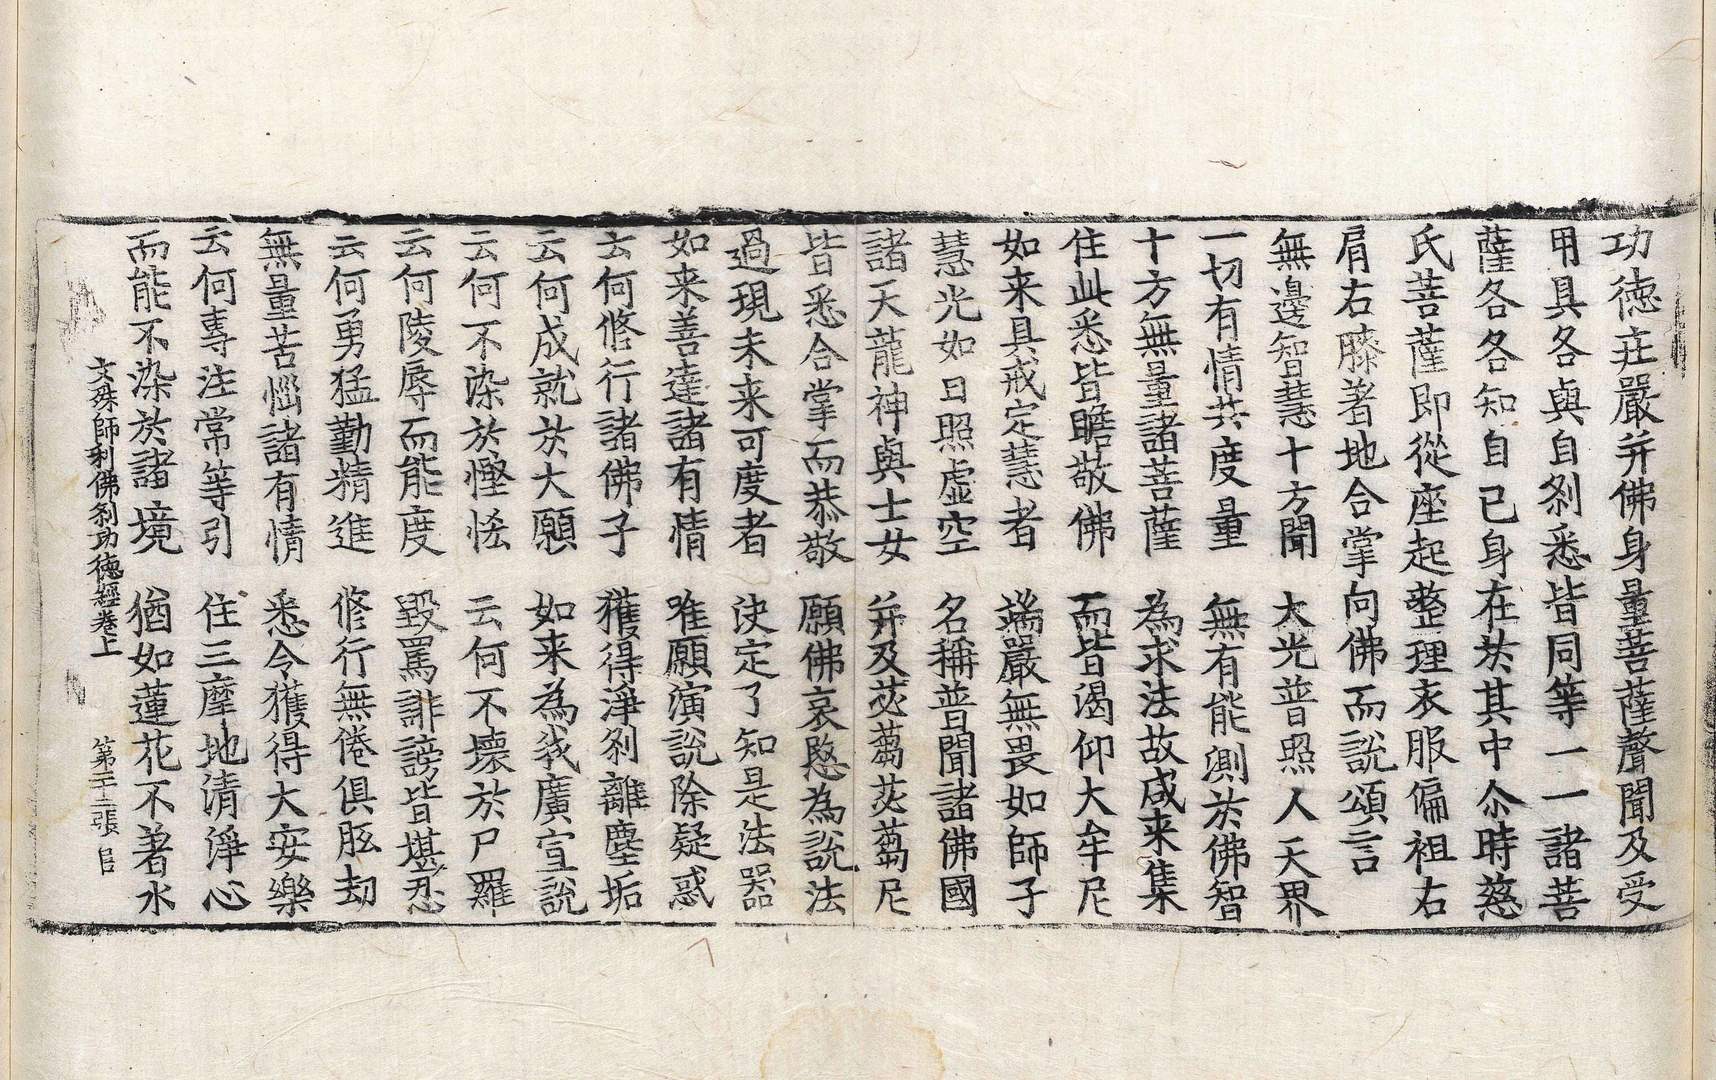 功德莊嚴并佛身量菩薩聲聞及受
用具各與自刹悉皆同等一一諸菩
薩各各知自己身在於其中尒時慈
氏菩薩即從座起整理衣服偏袒右
肩右膝著地合掌向佛而說頌言
無邊智慧十方聞 大光普照人天界
一切有情共度量 無有能測於佛智
十方無量諸菩薩 為求法故咸来集
住此悉皆瞻敬佛 而皆渴仰大牟尼
如来具戒定慧者 端嚴無畏如師子
慧光如日照虛空 名稱普聞諸佛國
諸天龍神與士女 并及苾蒭苾蒭尼
皆悉合掌而恭敬 願佛哀愍為說法
過現未来可度者 決定了知是法器
如来善達諸有情 唯願演說除疑惑
云何修行諸佛子 獲得淨刹離塵垢
云何成就於大願 如来為我廣宣說
云何不染於慳悋 云何不壞於尸羅
云何陵辱而能度 毀罵誹謗皆堪忍
云何勇猛勤精進 修行無倦俱胝劫
無量苦惱諸有情 悉令獲得大安樂
云何專注常等引 住三摩地清淨心
而能不染於諸境 猶如蓮花不著水
文殊師利佛刹功德經卷上 第二十三張